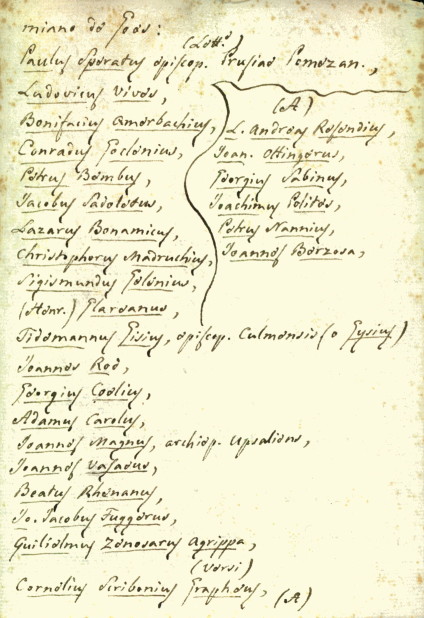 miano de Goes:
(Lett.e)
Paulus Speratus episcop. Prusiae Pomezan.,
Ludovicus Vives,
Bonifacius Amorbachius,
Conradus Goclenius,
Petrus Bembus,
Jacobus Sadoletus,
Lazarus Bonamicus,
Christophorus Madruchius,
Sigismundus Gelenius,
(Henr.) Glareanus,
(A)
L. Andreas Resendius,
Joan. Ottingerus,
Georgius Sabinus,
Joachimus Polites,
Petrus Nannius,
Joannes Berzosa,
Tidemannus Gisius, episcop. Culmensis (o Gysius)
Joannes Rod,
Georgius Coelius,
Adamus Carolus,
Joannes Magnus, archiep. Upsaliens,
Joannes Vasaeus,
Beatus Rhenanus,
Jo. Jacobus Fuggerus,
Guilielmus Zenosarus Agrippa,
(versi)
Cornelius Scribonius Grapheus, (A)